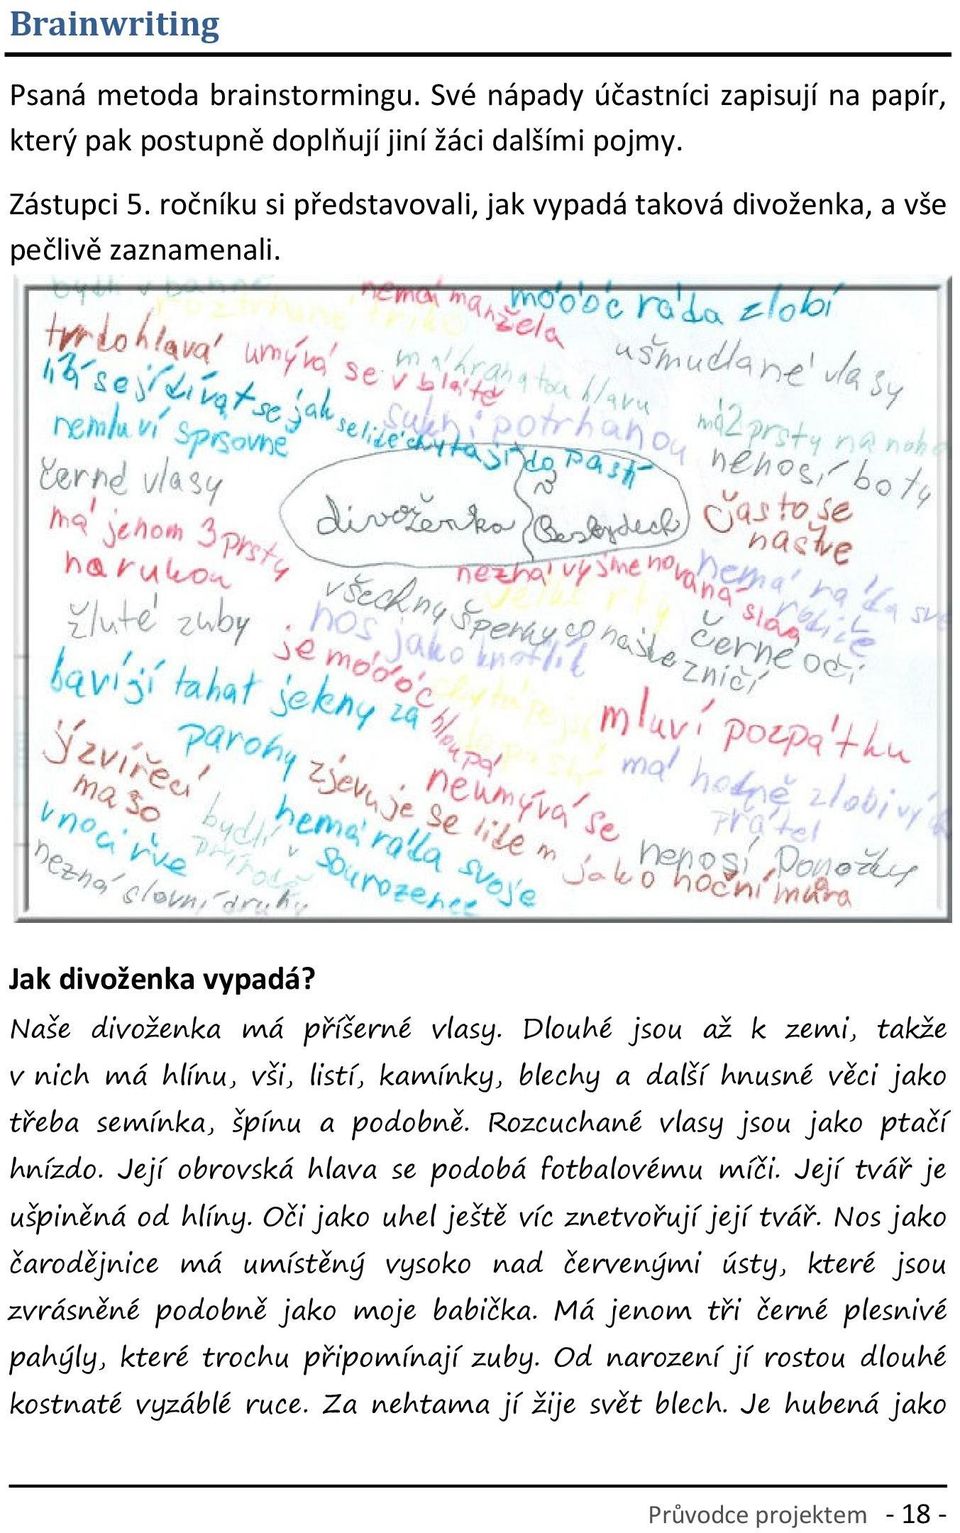 Brainwriting
Psaná metoda brainstormingu. Své nápady účastníci zapisují na papír,
který pak postupně doplňují jiní žáci dalšími pojmy.
Zástupci 5. ročníku si představovali, jak vypadá taková divoženka, a vše
pečlivě zaznamenali.
bydlí v bahně
roztrhané triko
nemá manžela
móóóc ráda zlobí
tvrdohlavá
umývá se v blátě
má hranatou hlavu
ušmudlané vlasy
líbí se jí dívat se jak se lidé chytají do pastí
sukni potrhanou
má 2 prsty na noho
nemluví sprsovně
nenosí boty
černé vlasy
divoženka
často se
naštve
má jenom 3 prsty
na rukou
nezná vyjmenovaná slova
nemá ráda své
rodiče
žluté zuby
všechny šperky co najde zničí
nos jako knoflík
černé oči
je móóóc hloupá
baví jí tahat jeleny za
parohy
mluví pozpátku
jí zvířecí
maso
zjevuje se lidem
jako noční můra
neumývá se
má hodně zlobivých
přátel
v noci řve
bydlí v
přírodě
nemá ráda svoje
sourozence
nenosí ponožky
nezná slovní druhy
Jak divoženka vypadá?
Naše divoženka má příšerné vlasy. Dlouhé jsou až k zemi, takže
v nich má hlínu, vši, listí, kamínky, blechy a další hnusné věci jako
třeba semínka, špínu a podobně. Rozcuchané vlasy jsou jako ptačí
hnízdo. Její obrovská hlava se podobá fotbalovému míči. Její tvář je
ušpiněná od hlíny. Oči jako uhel ještě víc znetvořují její tvář. Nos jako
čarodějnice má umístěný vysoko nad červenými ústy, které jsou
zvrásněné podobně jako moje babička. Má jenom tři černé plesnivé
pahýly, které trochu připomínají zuby. Od narození jí rostou dlouhé
kostnaté vyzáblé ruce. Za nehtama jí žije svět blech. Je hubená jako
Průvodce projektem - 18 -